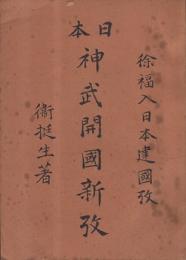 徐福入日本建國攷
日本
神武開國新攷
衞挺生著